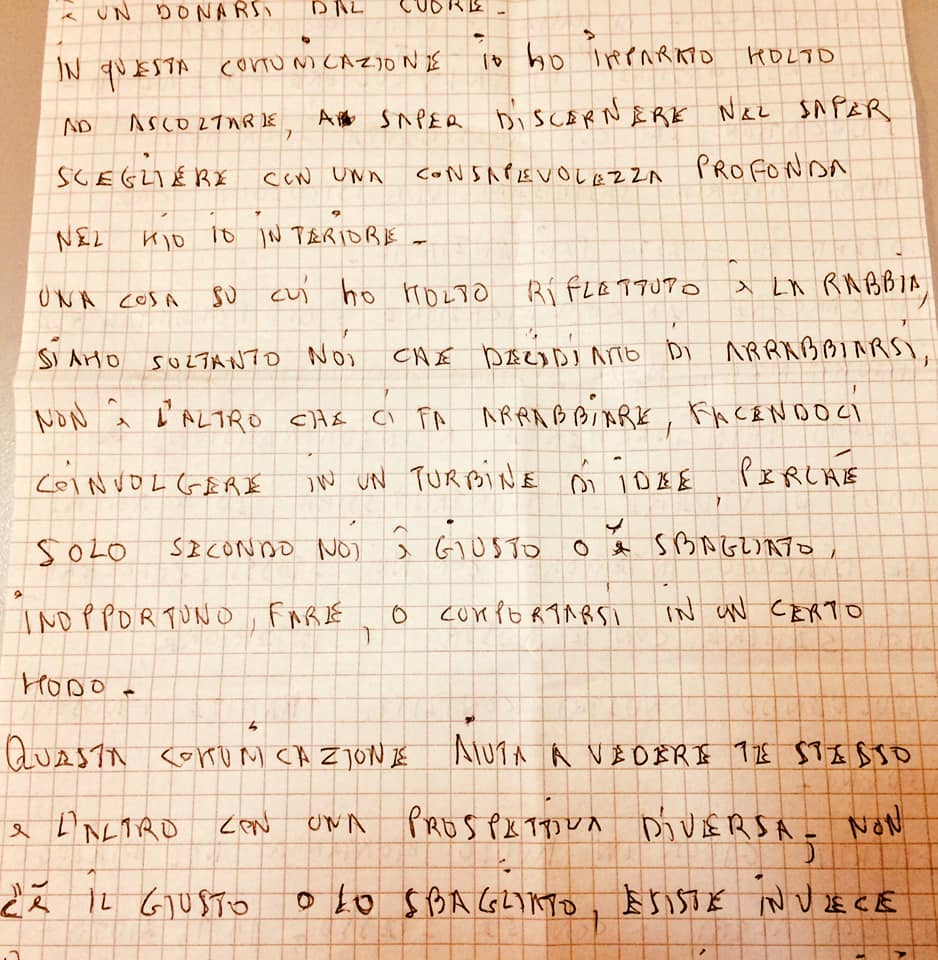 È UN DONARSI DAL CUORE -
IN QUESTA COMUNICAZIONE io ho iMPARATO MOLTO
AD ASCOLTARE, A SAPER DISCERNERE NEL SAPER
SCEGLIERE CON UNA CONSAPEVOLEZZA PROFONDA
NEL MIO IO INTERIORE -
UNA COSA SU CUI ho MOLTO RIFLETTUTO È LA RABBIA,
SIAMO SOLTANTO NOI CHE DECIDIAMO DI ARRABBIARSI,
NON È L'ALTRO CHE CI FA ARRABBIARE, FACENDOCI
COINVOLGERE IN UN TURBINE DI IDEE, PERCHÉ
SOLO SECONDO NOI È GIUSTO O È SBAGLIATO,
INOPPORTUNO, FARE, O COMPORTARSI IN UN CERTO
MODO -
QUESTA COMUNICAZIONE AIUTA A VEDERE TE STESSO
E L'ALTRO CON UNA PROSPETTIVA DIVERSA; NON
C'È IL GIUSTO O LO SBAGLIATO, ESISTE INVECE